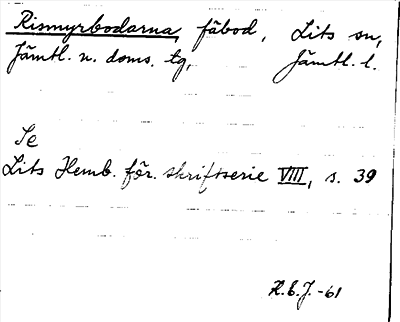 Rismyrbodarna, fäbod, Lits sn,
Jämtl. n. doms. tg, Jämtl. l.
Se
Lits Hemb. för. skriftserie VIII, s. 39
R.E.J. -61